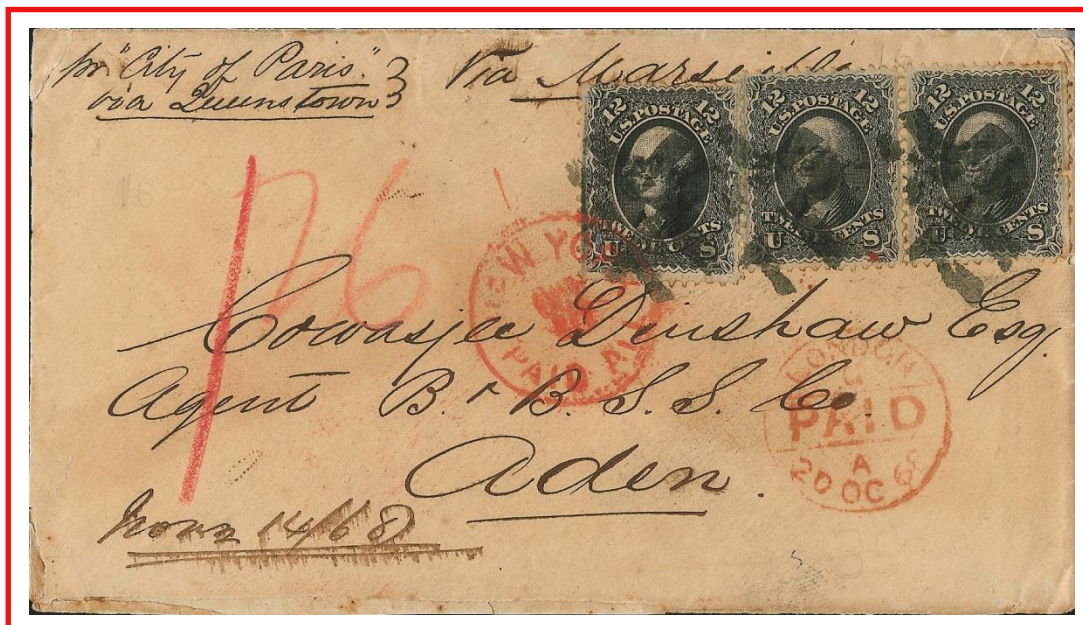 pr "City of Paris"
via Queenstown
Via Marseille
12 12
U.S. POSTAGE
TWELVE CENTS
U S
12 12
U.S. POSTAGE
TWELVE CENTS
U S
12 12
U.S. POSTAGE
TWELVE CENTS
U S
1
26
NEW YORK
PAID ALL
Cowasjee Dinshaw Esq.
Agent B. & B. S. S. Co.
Aden.
LONDON
PAID
A
20 OC 68
14/68